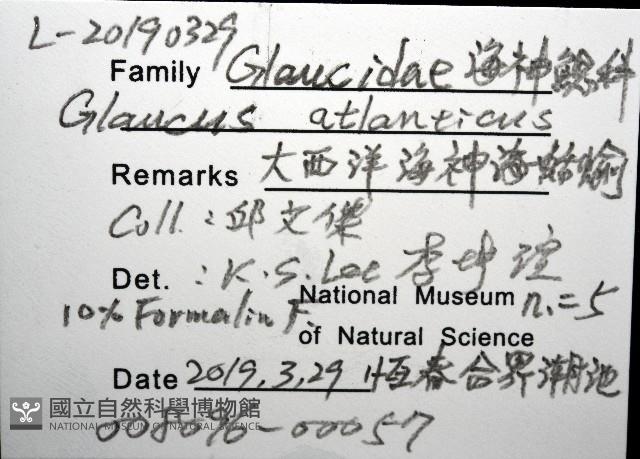 L-20190329
Family Glaucidae 海神鰓科
Glaucus atlanticus
Remarks 大西洋海神海蛞蝓
Coll.：邱文傑
Det.：K.S.Lee 李坤瑄
National Museum n.=5
10% Formalin F.
of Natural Science
Date 2019.3.29 恒春合界潮池
國立自然科學博物館
NATIONAL MUSEUM OF NATURAL SCIENCE
-00057